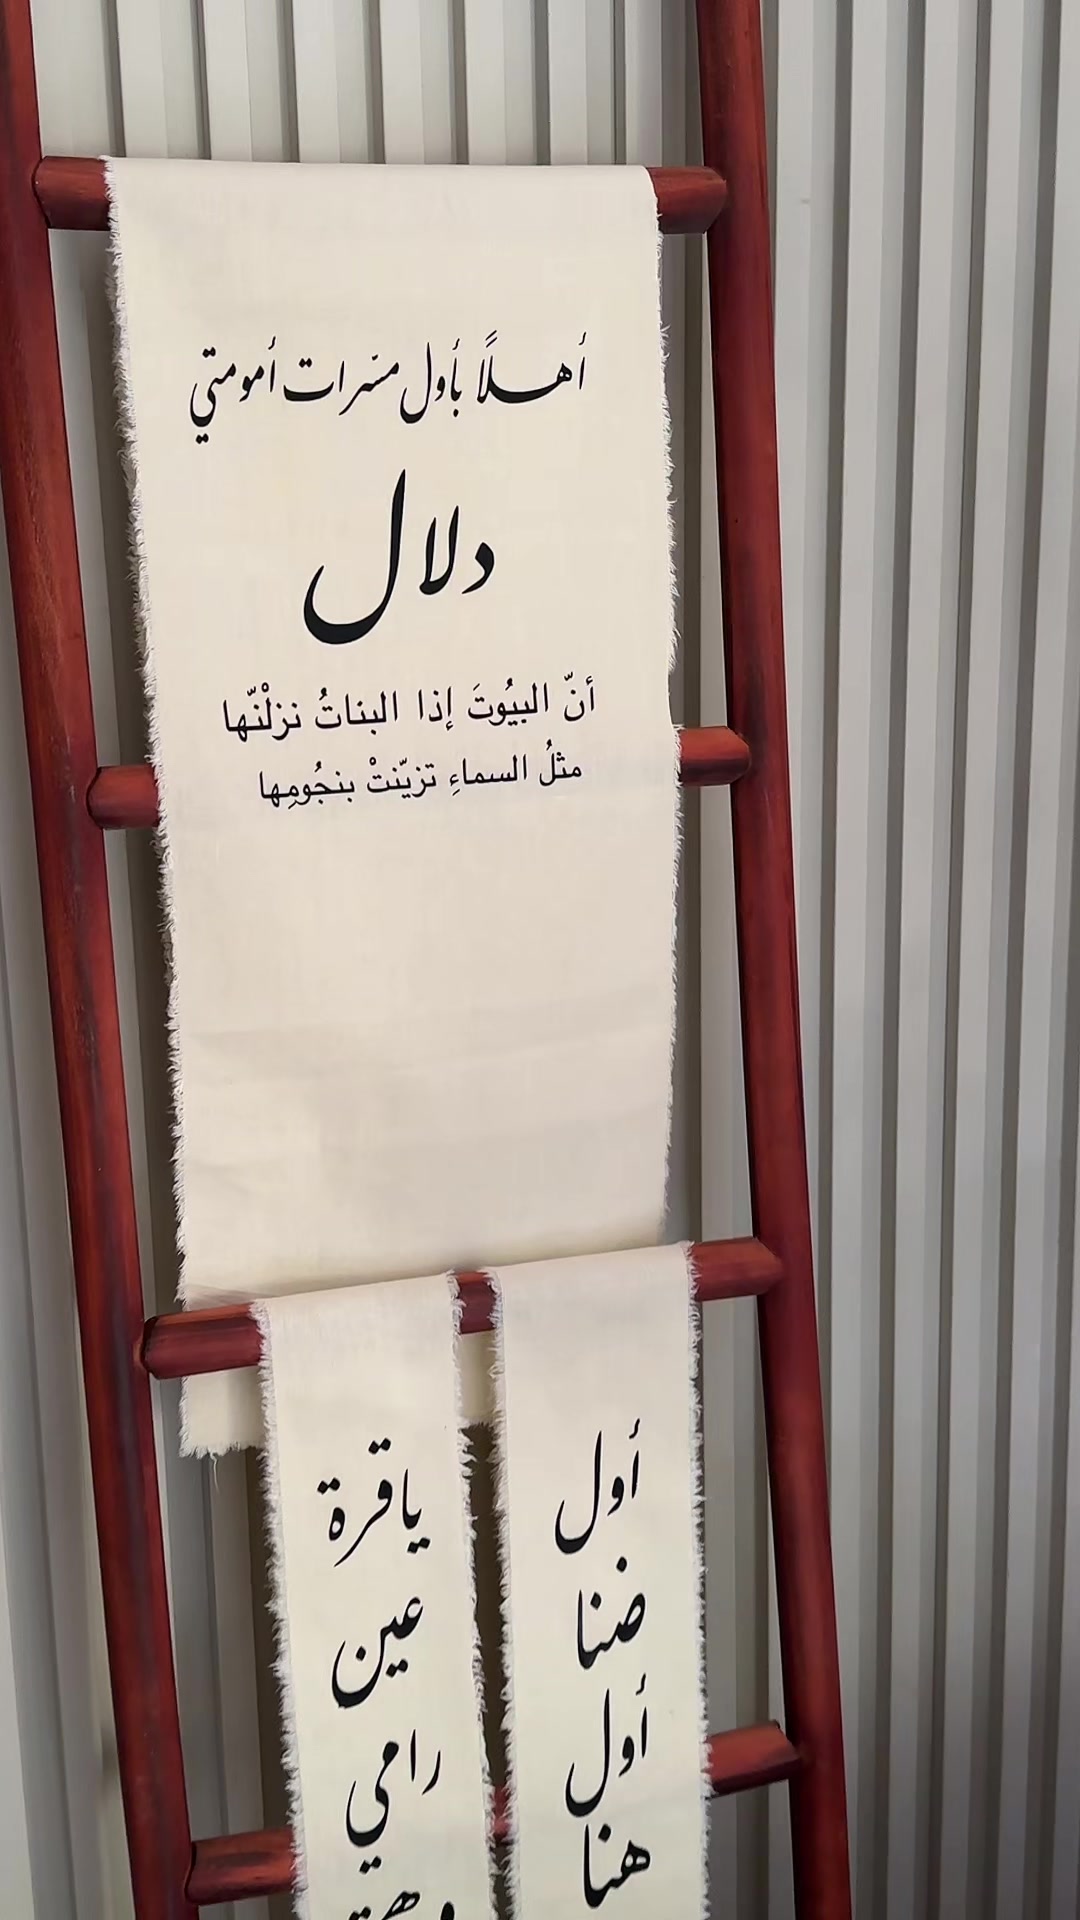 أهلاً بأول مسّرات أمومتي
دلال
أنّ البيُوتَ إذا البناتُ نزلْنّها
مثلُ السماءِ تزيّنتْ بنجُومِها
أول
ضنا
أول
هنا
ياقرة
عين
رامي